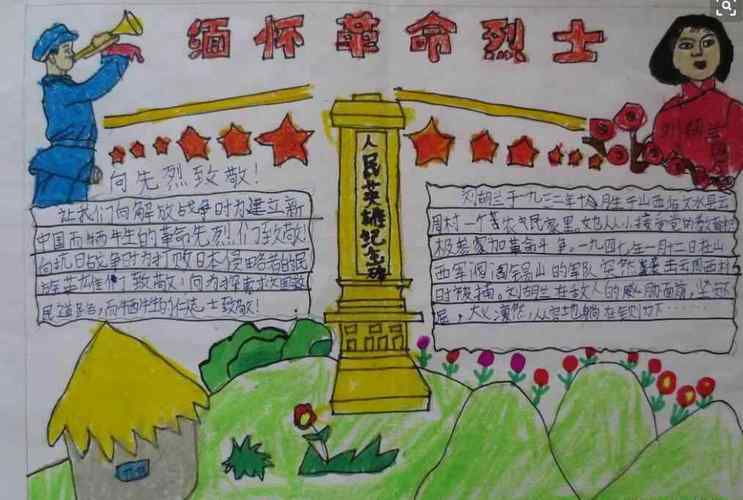 缅怀革命烈士
刘胡兰
向先烈致敬!
人民英雄纪念碑
让我们向解放战争时为建立新
中国而牺牲的革命先烈们致敬!
向抗日战争时为打败日本侵略者的民
族英雄们致敬!向为
民 而牺牲的 士致敬!
刘胡兰于一九三二年十月生于山西省文水县云
周村一个 农民家里。她从小接受党的教育
积 参加革命斗争。一九四七年一月十二日在山
西军阀阎锡山的军队突然袭击云周西村
时被捕。刘胡兰在敌人的威胁面前,坚
屈,大义凛然,从容地躺在铡刀下……